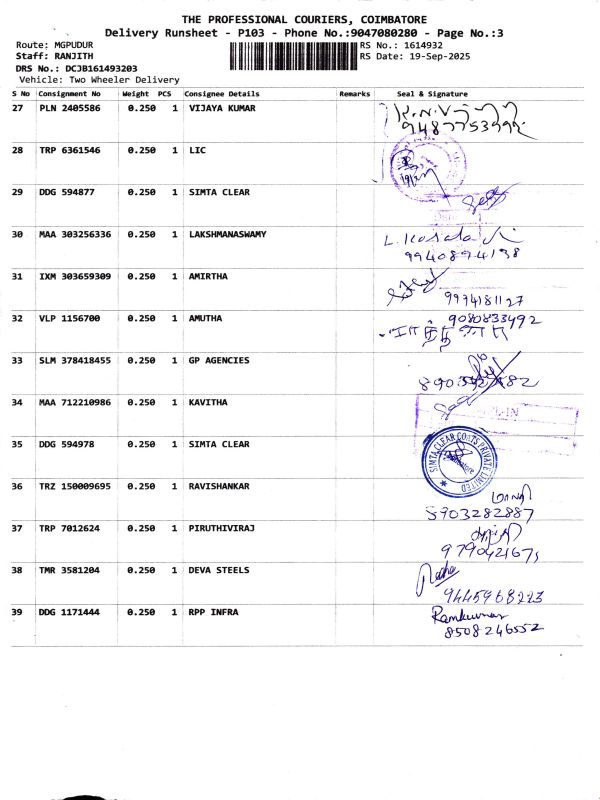 THE PROFESSIONAL COURIERS, COIMBATORE
Delivery Runsheet - P103 - Phone No.:9047080280 - Page No.:3
Route: MGPUDUR
RS No.: 1614932
Staff: RANJITH
RS Date: 19-Sep-2025
DRS No.: DCJB161493203
Vehicle: Two Wheeler Delivery
S No Consignment No Weight PCS Consignee Details Remarks Seal & Signature
27 PLN 2405586 0.250 1 VIJAYA KUMAR
28 TRP 6361546 0.250 1 LIC
29 DDG 594877 0.250 1 SIMTA CLEAR
30 MAA 303256336 0.250 1 LAKSHMANASWAMY
9940894138
31 IXM 303659309 0.250 1 AMIRTHA
9994181127
32 VLP 1156700 0.250 1 AMUTHA 9080833492
33 SLM 378418455 0.250 1 GP AGENCIES
34 MAA 712210986 0.250 1 KAVITHA
35 DDG 594978 0.250 1 SIMTA CLEAR
SIMTA CLEAR COATS PRIVATE LIMITED
36 TRZ 150009695 0.250 1 RAVISHANKAR
5903282887
37 TRP 7012624 0.250 1 PIRUTHIVIRAJ
38 TMR 3581204 0.250 1 DEVA STEELS
9445968223
39 DDG 1171444 0.250 1 RPP INFRA Ramkumar
8508246552